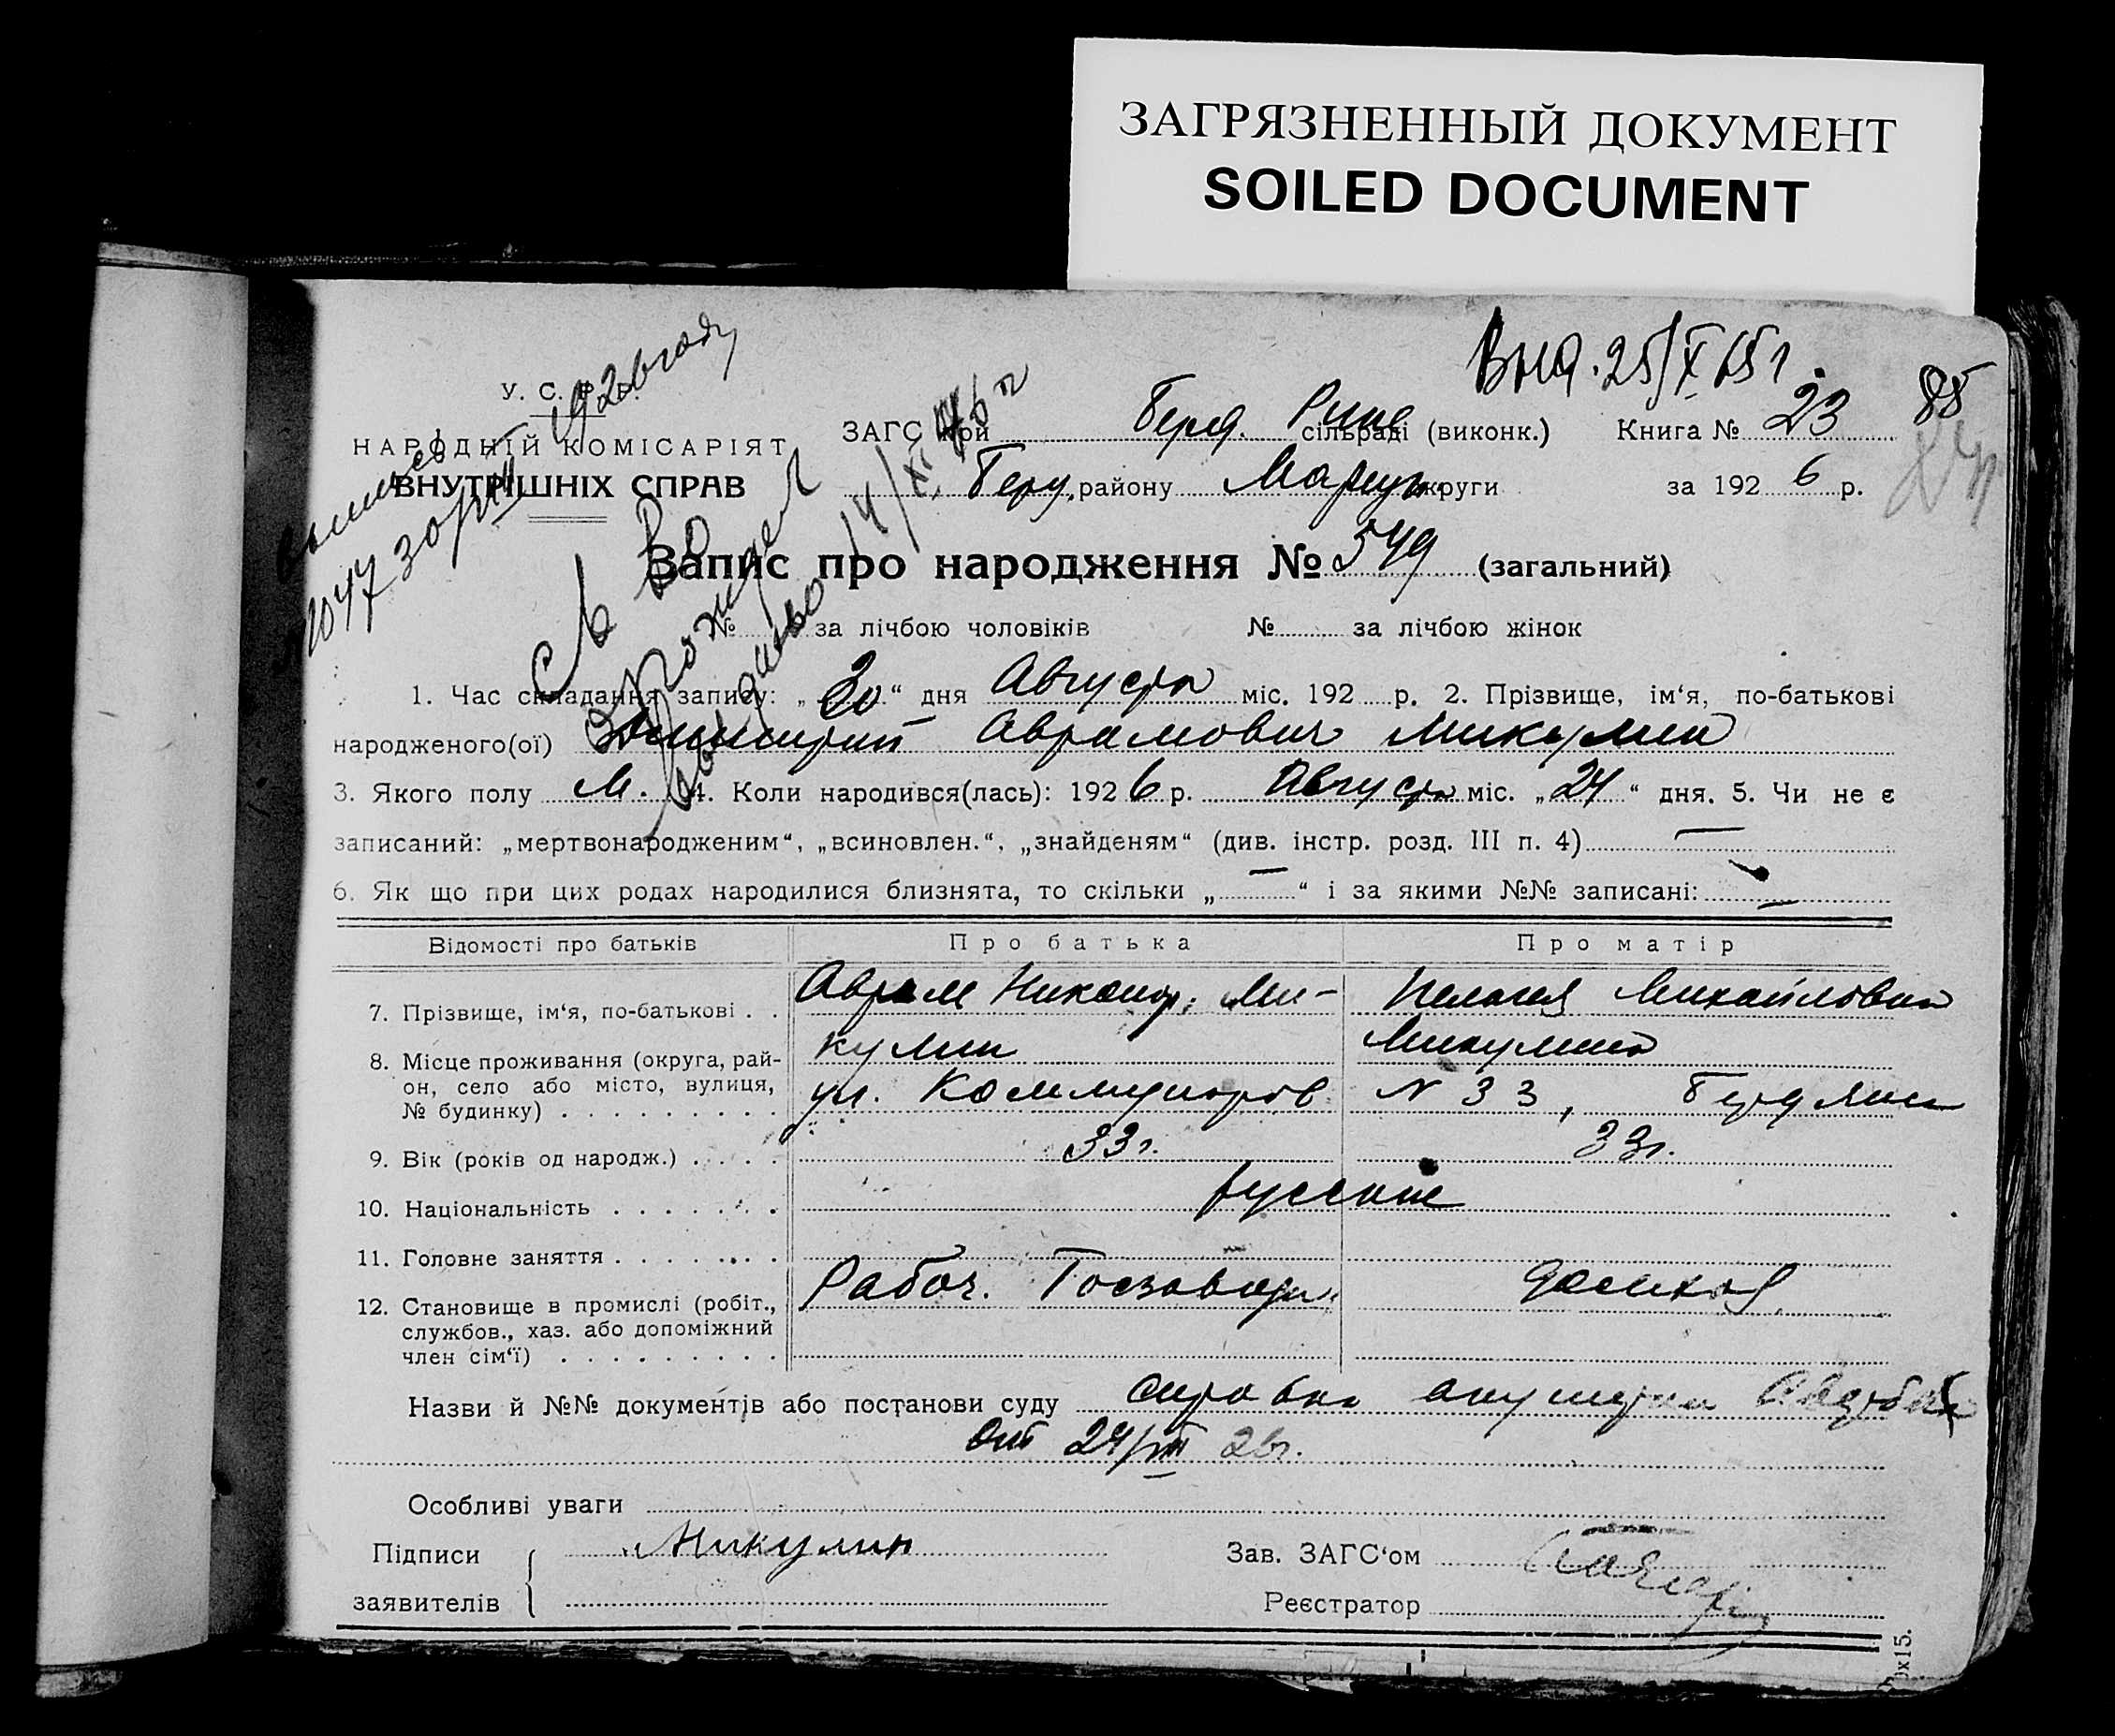 ЗАГРЯЗНЕННЫЙ ДОКУМЕНТ
SOILED DOCUMENT
Выд. 25/X 65 г.
У. С. Р. Р.
НАРОДНІЙ КОМІСАРІЯТ
ВНУТРІШНІХ СПРАВ
ЗАГС при Берд. Рике сільраді (виконк.) Книга № 23 85
Берд. району Мариуп. округи за 1926 р.
Запис про народження № 549 (загальний)
№ за лічбою чоловіків № за лічбою жінок
1. Час складання запису: „30“ дня Августа міс. 192 р. 2. Прізвище, ім‘я, по-батькові
народженого(ої) Димитрий Аврамович Микулин
3. Якого полу М. 4. Коли народився(лась): 1926 р. Августа міс. „24“ дня. 5. Чи не є
записаний: „мертвонародженим“, „всиновлен.“, „знайденям“ (див. інстр. розд. III п. 4) —
6. Як що при цих родах народилися близнята, то скільки „—“ і за якими №№ записані: —
Відомості про батьків Про батька Про матір
7. Прізвище, ім‘я, по-батькові . . Аврам Никанор. Ми- Пелагея Михайловна
кулин Микулина
8. Місце проживання (округа, рай-
он, село або місто, вулиця, ул. Коммунаров N 33, Бердянск
№ будинку) . . . . . . . . .
9. Вік (років од народж.) . . . . 33 г. 33 г.
10. Національність . . . . . . . русские
11. Головне заняття . . . . . . .
Рабоч. Госзавода домохоз.
12. Становище в промислі (робіт.,
службов., хаз. або допоміжний
член сім‘ї) . . . . . . . . .
Назви й №№ документів або постанови суду справка акушерки
от 24/VIII 26 г.
Особливі уваги
Підписи Микулин Зав. ЗАГС‘ом
заявителів Реєстратор